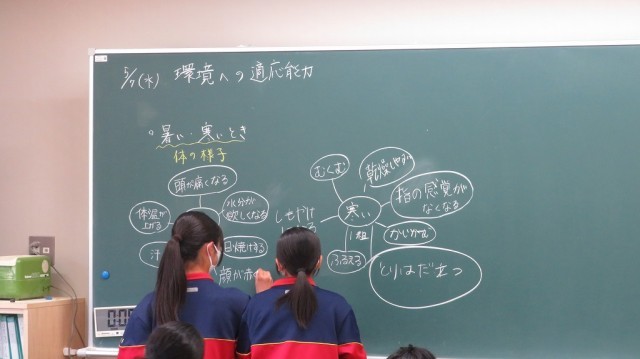 5/7(水) 環境への適応能力
。暑い・寒いとき
体の様子
頭が痛くなる
水分が
欲しくなる
体温が
上がる
日焼けする
汗
顔が赤
むくむ
しもやけ
寒い
1組
指の感覚が
なくなる
かじかむ
ふるえる
とりはだ立つ